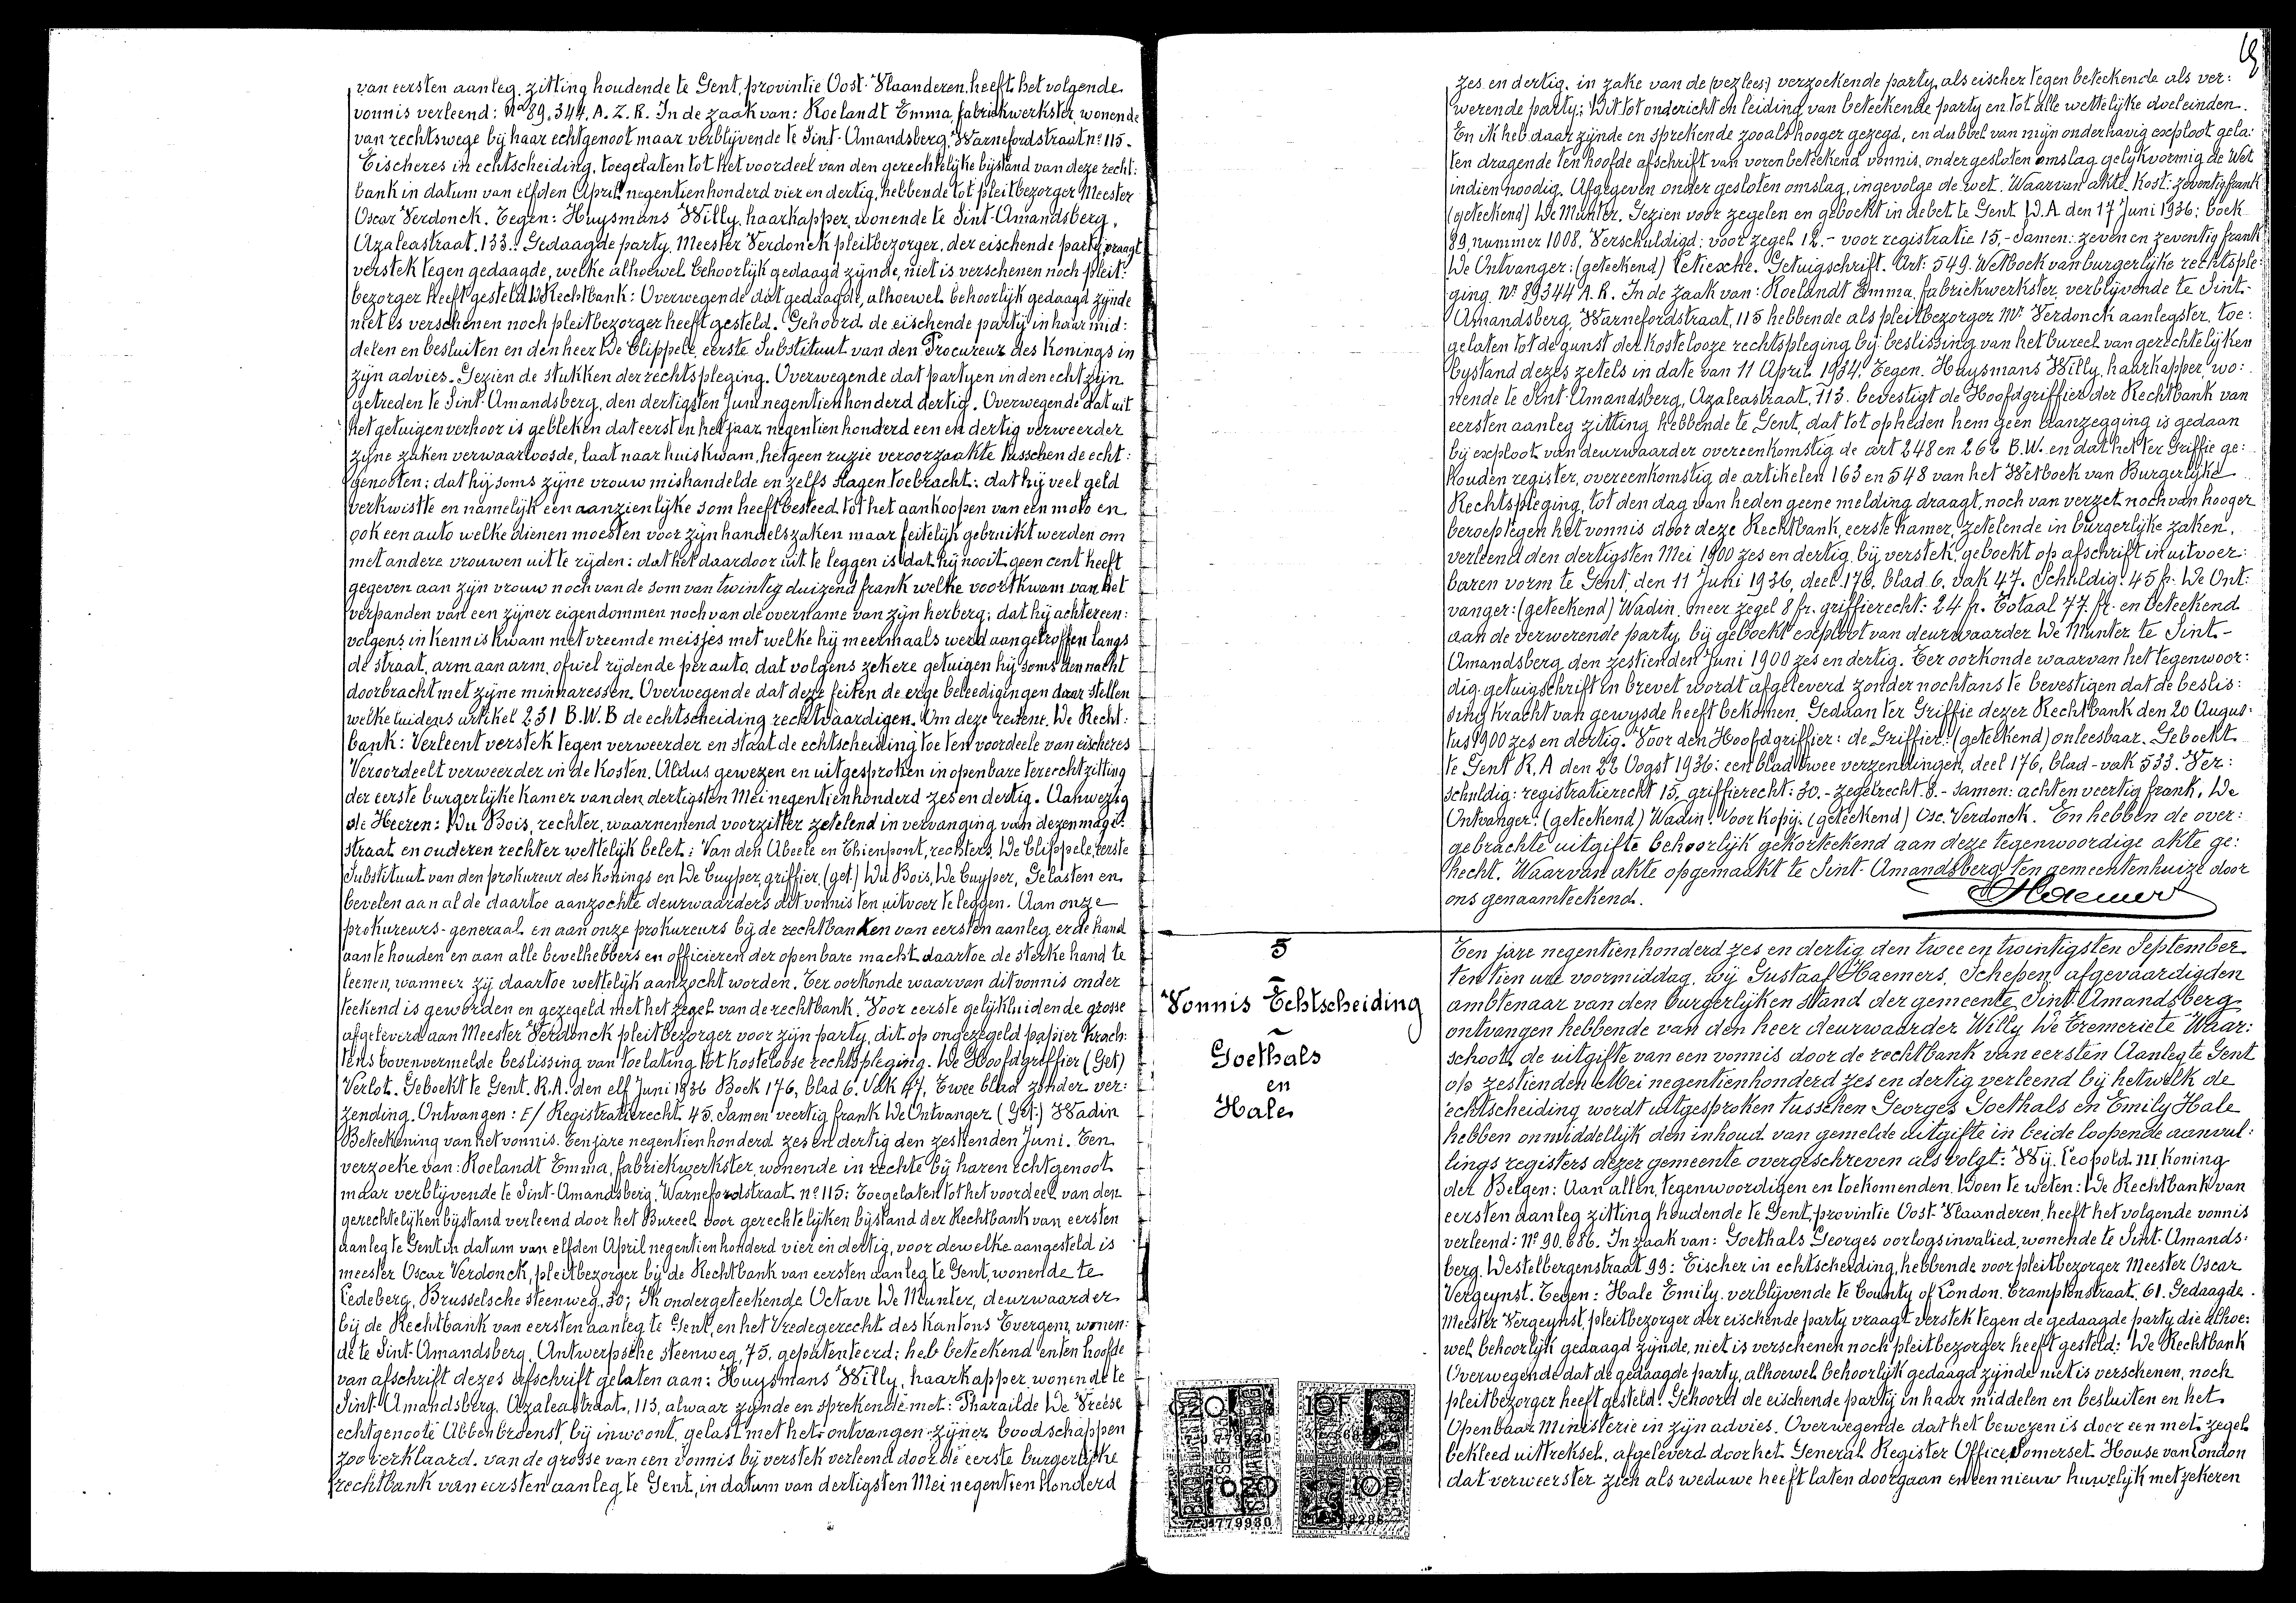 van eersten aanleg, zitting houdende te Gent, provintie Oost-Vlaanderen, heeft het volgende
vonnis verleend: No 89.344. A. Z. R. In de zaak van: Roelandt Emma, fabriekwerkster, wonende
van rechtswege bij haar echtgenoot maar verblijvende te Sint-Amandsberg, Warnefordstraat no 115.
Eischeres in echtscheiding, toegelaten tot het voordeel van den gerechtelijke bijstand van deze recht:
bank in datum van elfden April negentienhonderd vier en dertig, hebbende tot pleitbezorger Meester
Oscar Verdonck. Tegen: Huysmans Willy, haarkapper, wonende te Sint-Amandsberg,
Azaleastraat, 133.. Gedaagde party. Meester Verdonck pleitbezorger, der eischende party, vraagt
verstek tegen gedaagde, welke alhoewel behoorlijk gedaagd zijnde, niet is verschenen noch pleit:
bezorger heeft gesteld. De Rechtbank: Overwegende dat gedaagde, alhoewel behoorlijk gedaagd zijnde
niet is verschenen noch pleitbezorger heeft gesteld. Gehoord de eischende partij in haar mid:
delen en besluiten en den heer De Clippele, eerste Substituut van den Procureur des Konings in
zijn advies. Gezien de stukken der rechtspleging. Overwegende dat partyen in den echt zijn
getreden te Sint-Amandsberg, den dertigsten Juni negentienhonderd dertig. Overwegende dat uit
het getuigenverhoor is gebleken dat eerst in het jaar negentienhonderd een en dertig verweerder
zijne zaken verwaarloosde, laat naar huis kwam, hetgeen ruzie veroorzaakte tusschen de echt:
genooten; dat hij soms zijne vrouw mishandelde en zelfs slagen toebracht; dat hij veel geld
verkwistte en namelijk een aanzienlijke som heeft besteed tot het aankoopen van een moto en
ook een auto welke dienen moesten voor zijn handelszaken maar feitelijk gebruikt werden om
met andere vrouwen uit te rijden; dat het daardoor uit te leggen is dat hij nooit geen cent heeft
gegeven aan zijn vrouw noch van de som van twintig duizend frank welke voortkwam van het
verpanden van een zijner eigendommen noch van de overname van zijn herberg; dat hij achtereen:
volgens in kennis kwam met vreemde meisjes met welke hij meermaals werd aangetroffen langs
de straat, arm aan arm, ofwel rijdende per auto, dat volgens zekere getuigen hij soms den nacht
doorbracht met zijne minnaressen. Overwegende dat deze feiten de erge beleedigingen daar stellen
welke luidens artikel 231 B.W.B de echtscheiding rechtvaardigen. Om deze redens. De Recht:
bank: Verleent verstek tegen verweerder en staat de echtscheiding toe ten voordeele van eischeres
Veroordeelt verweerder in de kosten. Aldus gewezen en uitgesproken in openbare terechtzitting
der eerste burgerlijke kamer van den dertigsten Mei negentienhonderd zes en dertig. Aanwezig
de Heeren: Du Bois, rechter, waarnemend voorzitter zetelend in vervanging van dezen magi:
straat en ouderen rechter wettelijk belet; Van den Abeele en Thienpont, rechters, De Clippele, eerste
Substituut van den prokureur des Konings en De Cuyper, griffier, (get.) Du Bois, De Cuyper, Gelasten en
bevelen aan al de daartoe aanzochte deurwaarders dit vonnis ten uitvoer te leggen. Aan onze
prokureurs-generaal en aan onze prokureurs bij de rechtbanken van eersten aanleg er de hand
aan te houden en aan alle bevelhebbers en officieren der openbare macht daartoe de sterke hand te
leenen, wanneer zij daartoe wettelijk aanzocht worden. Ter oorkonde waarvan dit vonnis onder
teekend is geworden en gezegeld met het zegel van de rechtbank. Voor eerste gelijkluidende grosse
afgeleverd aan Meester Verdonck pleitbezorger voor zijn party, dit op ongezegeld papier krach:
tens bovenvermelde beslissing van toelating tot kostelooze rechtspleging. De Hoofdgriffier (Get)
Verlot. Geboekt te Gent. R.A. den elf Juni 1936 Boek 176, blad 6. Vak 47, Twee blad zonder ver:
zending. Ontvangen: F/ Registratierecht 45. Samen veertig frank De Ontvanger (Get.) Wadin
Beteekening van het vonnis. Ten jare negentienhonderd zes en dertig den zestienden Juni. Ten
verzoeke van: Roelandt Emma, fabriekwerkster, wonende in rechte bij haren echtgenoot
maar verblijvende te Sint-Amandsberg, Warnefordstraat no 115; Toegelaten tot het voordeel van den
gerechtelijken bijstand verleend door het Bureel voor gerechtelijken bijstand der Rechtbank van eersten
aanleg te Gent in datum van elfden April negentienhonderd vier en dertig, voor dewelke aangesteld is
meester Oscar Verdonck, pleitbezorger bij de Rechtbank van eersten aanleg te Gent, wonende te
Ledeberg, Brusselsche steenweg, 30; Ik ondergeteekende Octave De Munter, deurwaarder
bij de Rechtbank van eersten aanleg te Gent, en het Vredegerecht des Kantons Evergem, wonen:
de te Sint-Amandsberg, Antwerpsche steenweg, 75, gepatenteerd; heb beteekend en ten hoofde
van afschrift dezes afschrift gelaten aan: Huysmans Willy, haarkapper wonende te
Sint-Amandsberg, Azaleastraat, 113, alwaar zijnde en sprekende met: Pharailde De Vreese
echtgenoote Abbenbroenst, bij inwoont, gelast met het ontvangen zijner boodschappen
zoo verklaard, van de grosse van een vonnis bij verstek verleend door de eerste burgerlijke
rechtbank van eersten aanleg te Gent, in datum van dertigsten Mei negentien honderd
zes en dertig, in zake van de (vezlees:) verzoekende party, als eischer tegen beteekende als ver:
werende party; Dit tot onderricht en leiding van beteekende party en tot alle wettelijke doeleinden.
En ik heb daar zijnde en sprekende zooals hooger gezegd, en dubbel van mijn onderhavig exploot gela:
ten dragende ten hoofde afschrift van vorenbeteekend vonnis, onder gesloten omslag gelijkvormig de Wet
indien noodig. Afgegeven onder gesloten omslag, ingevolge de wet. Waarvan akte. Kost: zeventig frank
(geteekend) De Munter. Gezien voor zegelen en geboekt in debet te Gent D.A den 17 Juni 1936; boek
89, nummer 1008. Verschuldigd: voor zegel 12.- voor registratie 15,- Samen: zeven en zeventig frank
De Ontvanger: (geteekend) Cetiexche. Getuigschrift. Art: 549. Wetboek van burgerlijke rechtsple:
ging. No 89344 A.R. In de zaak van: Roelandt Emma, fabriekwerkster, verblijvende te Sint-
Amandsberg, Warnefordstraat, 115 hebbende als pleitbezorger Mr Verdonck aanlegster, toe:
gelaten tot de gunst der kostelooze rechtspleging bij beslissing van het bureel van gerechtelijken
bystand dezes zetels in date van 11 April 1934. Tegen. Huysmans Willy, haarkapper wo:
nende te Sint-Amandsberg, Azaleastraat, 113. bevestigt de Hoofdgriffier der Rechtbank van
eersten aanleg zitting hebbende te Gent, dat tot opheden hem geen aanzegging is gedaan
bij exploot van deurwaarder overeenkomstig de art 248 en 262 B.W. en dat het ter Griffie ge:
houden register, overeenkomstig de artikelen 163 en 548 van het Wetboek van Burgerlijke
Rechtspleging, tot den dag van heden geene melding draagt, noch van verzet noch van hooger
beroep tegen het vonnis door deze Rechtbank, eerste kamer, zetelende in burgerlijke zaken,
verleend den dertigsten Mei 1900 zes en dertig, bij verstek, geboekt op afschrift in uitvoer:
baren vorm te Gent, den 11 Juni 1936, deel 176. blad 6. vak 47. Schuldig: 45 fr. De Ont:
vanger: (geteekend) Wadin, meer zegel 8 fr. griffierecht: 24 fr. Totaal 77. fr. en beteekend
aan de verwerende party bij geboekt exploot van deurwaarder De Munter te Sint-
Amandsberg den zestienden Juni 1900 zes en dertig. Ter oorkonde waarvan het tegenwoor:
dig getuigschrift in brevet wordt afgeleverd zonder nochtans te bevestigen dat de beslis:
sing kracht van gewijsde heeft bekomen. Gedaan ter Griffie dezer Rechtbank den 20 Augus:
tus 1900 zes en dertig. Voor den Hoofdgriffier: de Griffier: (geteekend) onleesbaar. Geboekt
te Gent R.A den 22 Oogst 1936: een blad twee verzendingen, deel 176, blad - vak 533. Ver:
schuldig: registratierecht 15, griffierecht: 30.- zegelrecht 8.- samen: acht en veertig frank. De
Ontvanger: (geteekend) Wadin. Voor kopij. (geteekend) Osc. Verdonck. En hebben de over:
gebrachte uitgifte behoorlijk gekorteekend aan deze tegenwoordige akte ge:
hecht. Waarvan akte opgemaakt te Sint-Amandsberg ten gemeentenhuize door
ons genaamteekend.
5
Vonnis Echtscheiding
Goethals
en
Hale
Ten jare negentienhonderd zes en dertig den twee en twintigsten September
ten tien ure voormiddag, wij Gustaaf Haemers, Schepen, afgevaardigden
ambtenaar van den burgerlijken stand der gemeente Sint-Amandsberg
ontvangen hebbende van den heer deurwaarder Willy De Tremerie te Waar:
schoot, de uitgifte van een vonnis door de rechtbank van eersten Aanleg te Gent
op zestienden Mei negentienhonderd zes en dertig verleend bij hetwelk de
echtscheiding wordt uitgesproken tusschen Georges Goethals en Emily Hale
hebben onmiddellijk den inhoud van gemelde uitgifte in beide loopende aanvul:
lings registers dezer gemeente overgeschreven als volgt: Wij. Leopold III Koning
der Belgen: Aan allen, tegenwoordigen en toekomenden. Doen te weten: De Rechtbank van
eersten aanleg zitting houdende te Gent, provintie Oost-Vlaanderen, heeft het volgende vonnis
verleend: No 90.686. In zaak van: Goethals Georges oorlogsinvalied, wonende te Sint-Amands:
berg, Westelbergenstraat 99: Eischer in echtscheiding, hebbende voor pleitbezorger Meester Oscar
Vergeynst. Tegen: Hale Emily. verblijvende te County of London. Cramptonstraat, 61. Gedaagde.
Meester Vergeynst, pleitbezorger der eischende party vraagt verstek tegen de gedaagde party die alhoe:
wel behoorlijk gedaagd zijnde, niet is verschenen noch pleitbezorger heeft gesteld: De Rechtbank
Overwegende dat de gedaagde party, alhoewel behoorlijk gedaagd zijnde niet is verschenen, noch
pleitbezorger heeft gesteld. Gehoord de eischende partij in haar middelen en besluiten en het
Openbaar Ministerie in zijn advies. Overwegende dat het bewezen is door een met zegel
bekleed uittreksel, afgeleverd door het General Register Office, Somerset House van London
dat verweerster zich als weduwe heeft laten doorgaan en een nieuw huwelijk met zekeren